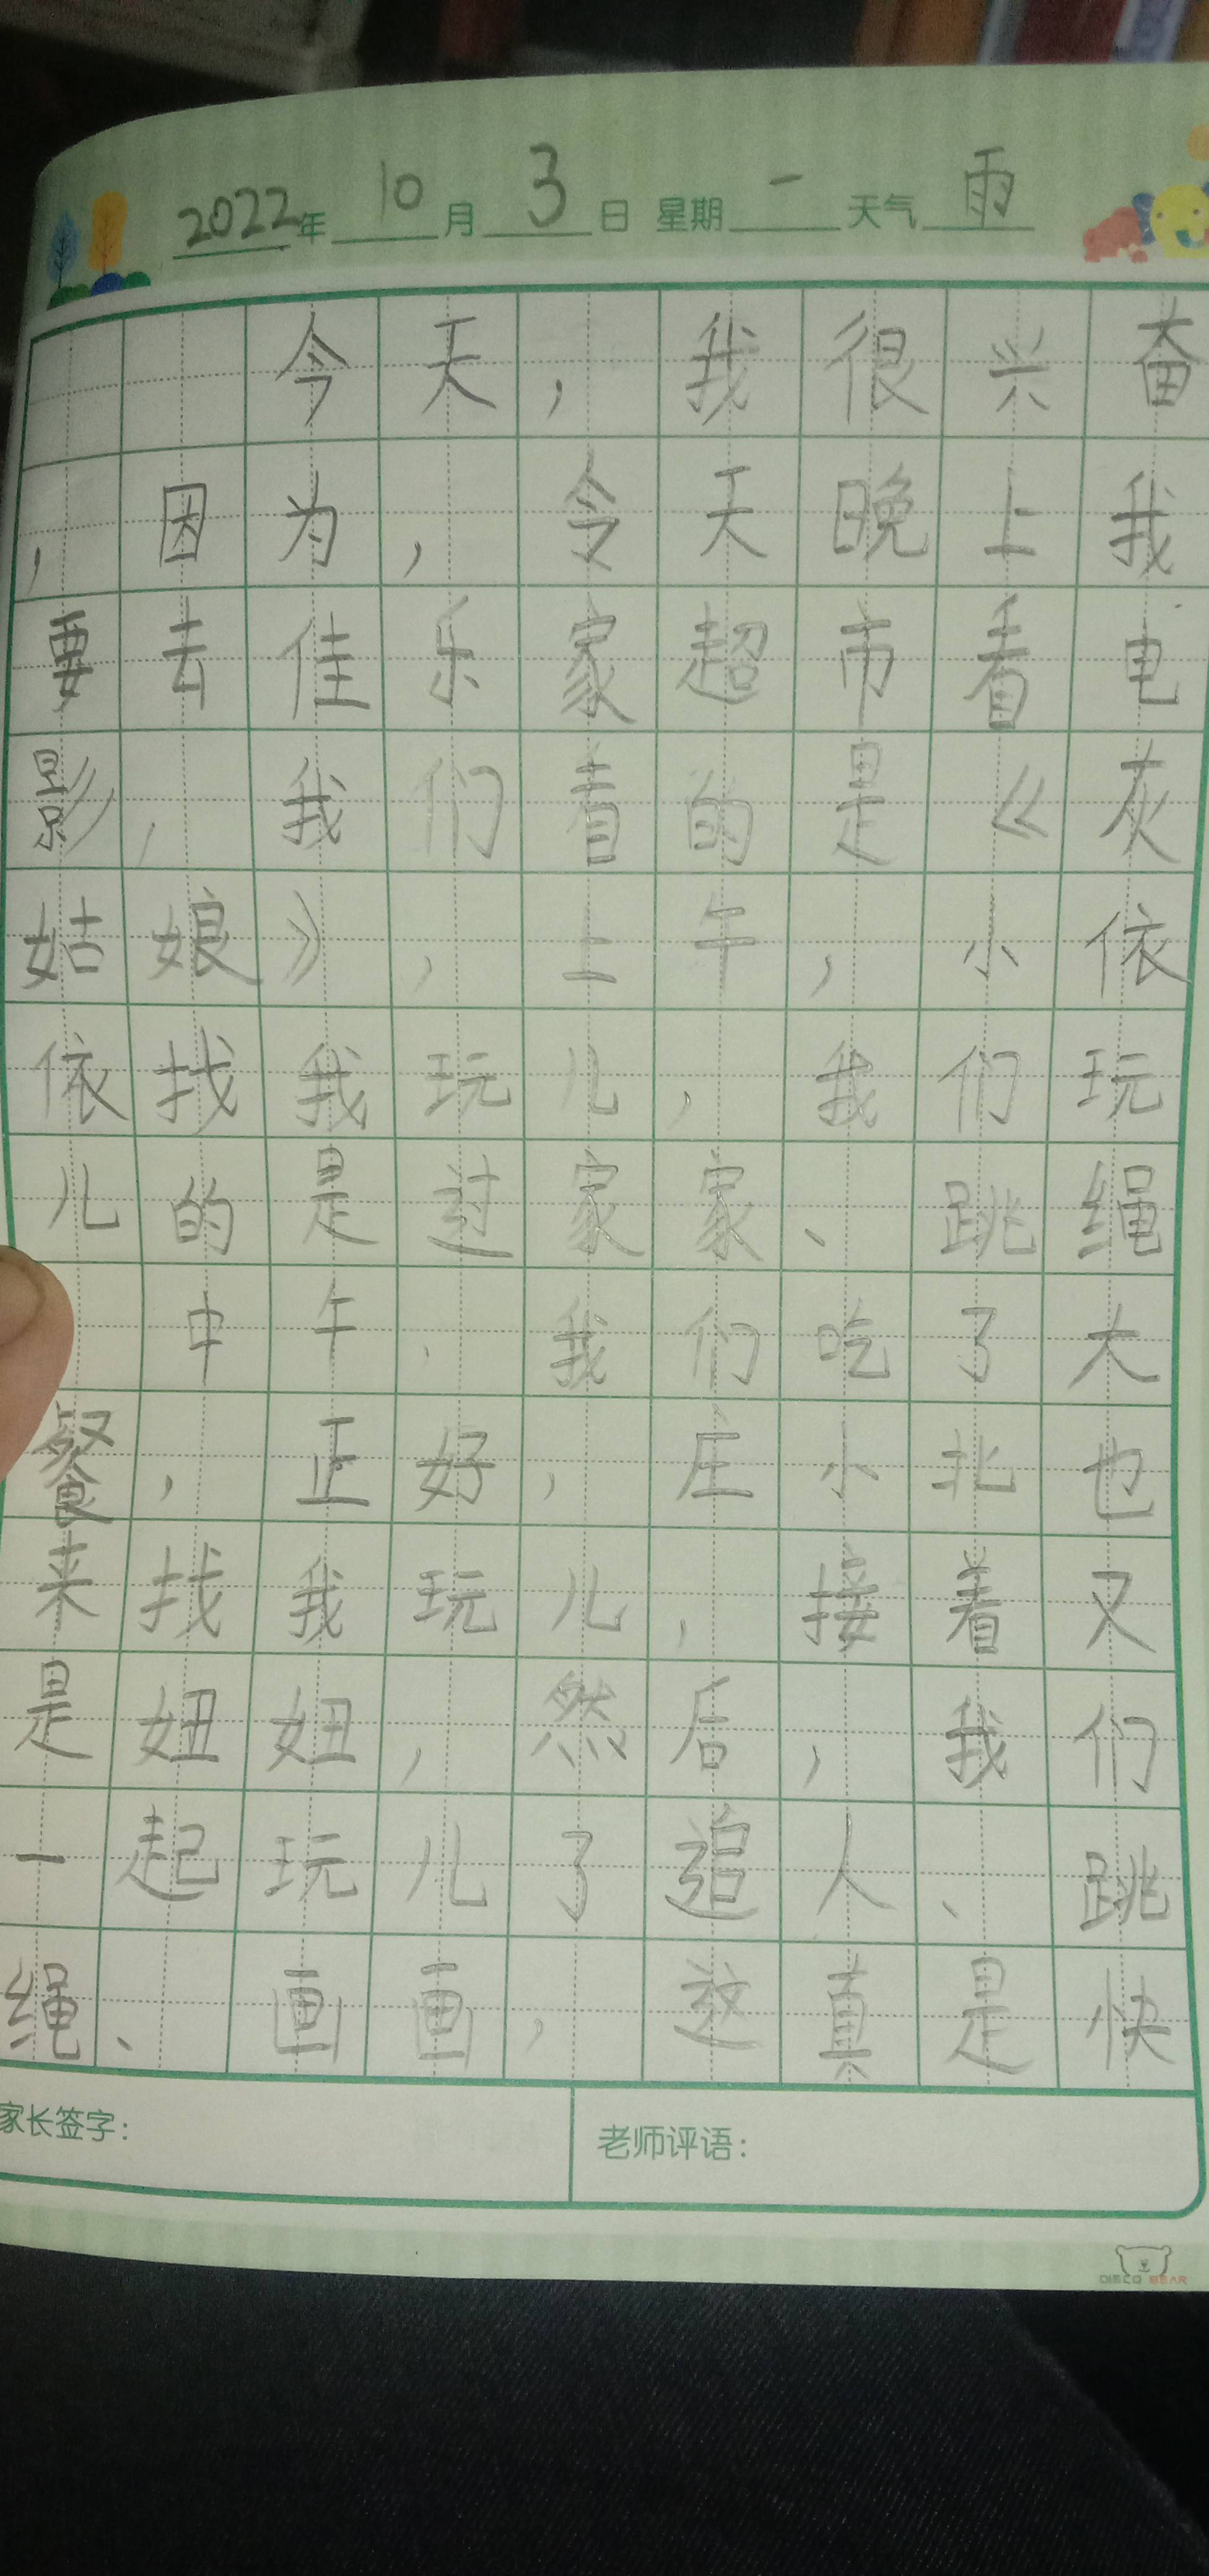 2022年10月3日 星期一 天气雨
今天，我很兴奋
，因为，令天晚上我
要去佳乐家超市看电
影，我们看的是《灰
姑娘》，上午，小依
依找我玩儿，我们玩
儿的是过家家、跳绳
中午，我们吃了大
餐，正好，庄小北也
来找我玩儿，接着又
是妞妞，然后，我们
一起玩儿了追人、跳
绳、画画，这真是快
家长签字：
老师评语：
DISCO BEAR